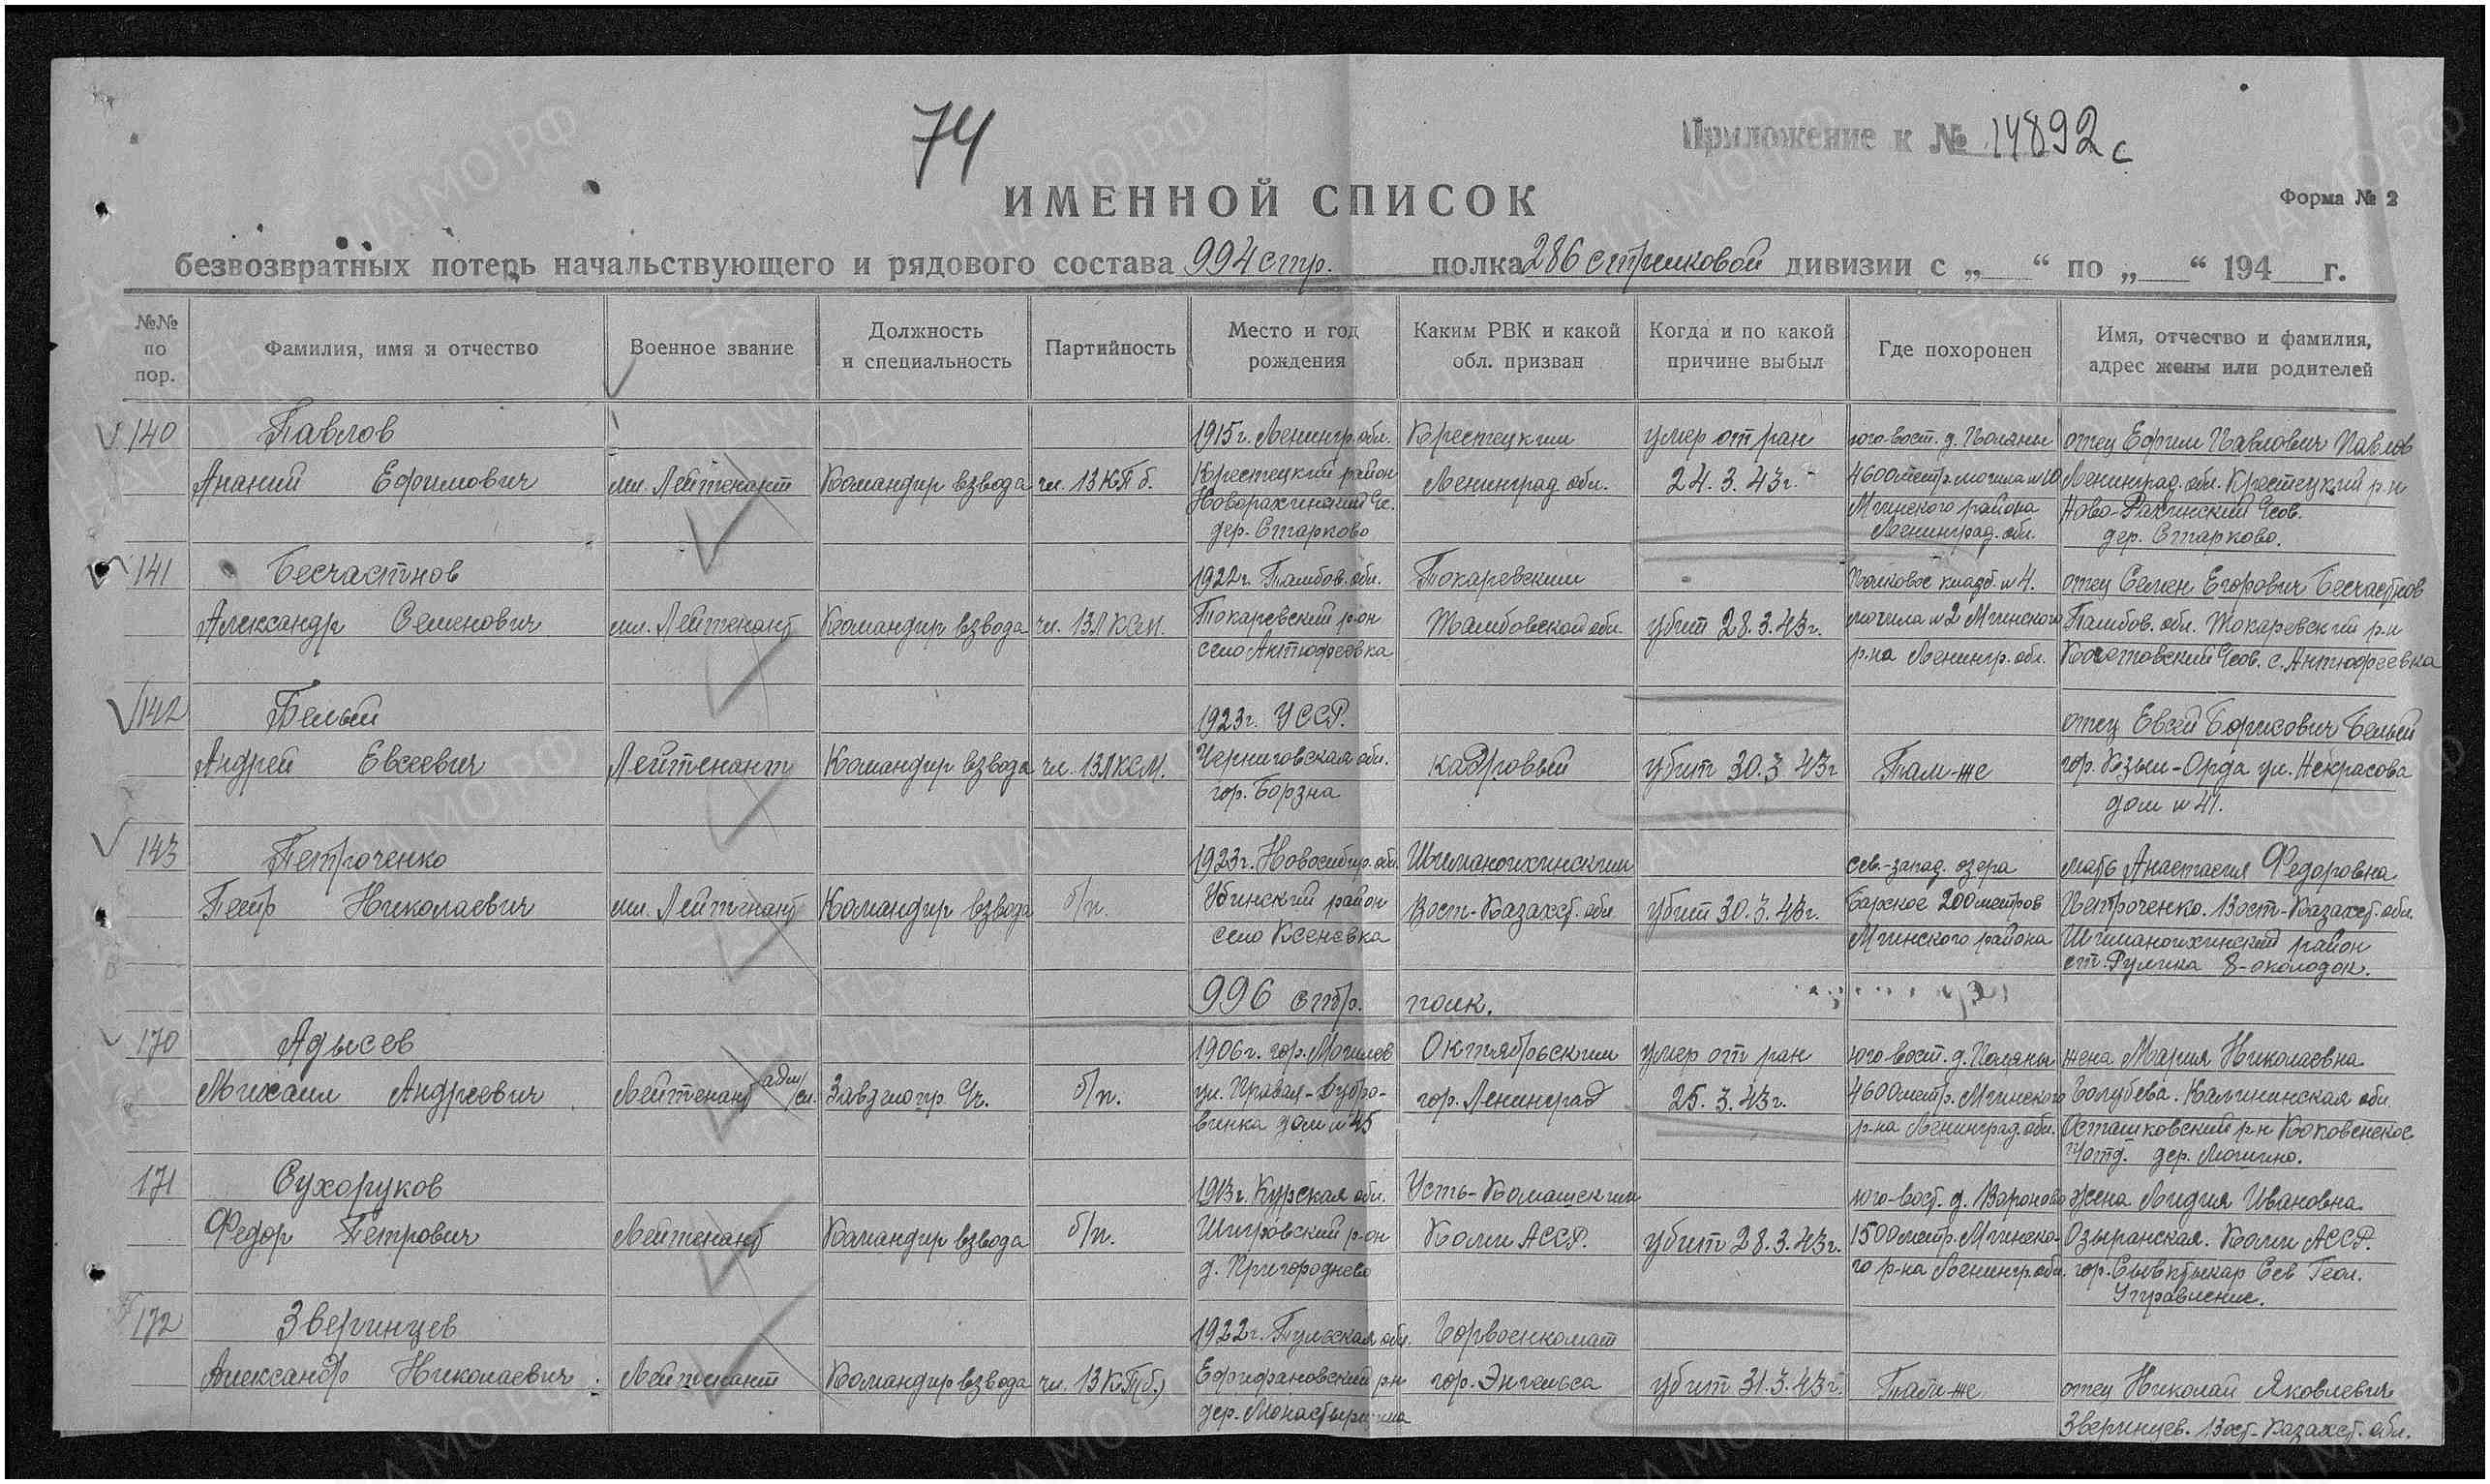 74
Приложение к № 14892с
ИМЕННОЙ СПИСОК
Форма № 2
безвозвратных потерь начальствующего и рядового состава 994 стр. полка 286 стрелковой дивизии с „ “ по „ “ 194 г.
№№ по пор.
Фамилия, имя и отчество
Военное звание
Должность и специальность
Партийность
Место и год рождения
Каким РВК и какой обл. призван
Когда и по какой причине выбыл
Где похоронен
Имя, отчество и фамилия, адрес жены или родителей
140 Павлов 1915г. Ленингр. обл. Крестецким умер от ран юго-вост. д. Поляны отец Ефим Павлович Павлов
Ананий Ефимович мл. Лейтенант Командир взвода чл. ВКП б. Крестецкий район Ленинград обл. 24.3.43г. 4600 метр. могила №10 Ленинград. обл. Крестецкий р-н
Новорахинский Чс. Мгинского района Ново-Рахинский Чсов.
дер. Старково Ленинград. обл. дер. Старково.
141 Бесчастнов 1922г. Тамбов. обл. Токаревским Полковое кладб. №4. отец Семен Егорович Бесчастнов
Александр Семенович мл. Лейтенант Командир взвода чл. ВЛКСМ. Токаревский р-он Тамбовской обл. убит 28.3.43г. могила №2 Мгинского Тамбов. обл. Токаревский р-н
село Антюфеевка р-на Ленингр. обл. Чсов. с. Антюфеевка
142 Белый 1923г. УССР. отец Евсей Борисович Белый
Андрей Евсеевич Лейтенант Командир взвода чл. ВЛКСМ. Черниговская обл. кадровый убит 30.3.43г Там-же гор. Кзыл-Орда ул. Некрасова
гор. Борзна дом №41.
143 Петроченко 1923г. Новосибир. обл. сев.-запад. озера мать Анастасия Федоровна
Петр Николаевич мл. Лейтенант Командир взвода б/п. Убинский район Вост-Казахст. обл. убит 30.3.43г. Барское 200 метров Петроченко. Вост-Казахст. обл.
село Ксеневка Мгинского района район
8-околодок.
996 стр. полк.
170 Адысев 1906г. гор. Могилев Октябрьским умер от ран юго-вост. д. Поляны жена Мария Николаевна
Михаил Андреевич Лейтенант адм/сл. б/п. ул. Правая-Дубро- гор. Ленинград 25.3.43г. 4600 метр. Мгинского Голубева. Калининская обл.
венка дом №45 р-на Ленинград. обл. Осташковский р-н
дер.
171 Сухоруков 1913г. Курская обл. юго-вост. д. Вороново жена Лидия Ивановна
Федор Петрович Лейтенант Командир взвода б/п. Щигровский р-он Коми АССР. убит 28.3.43г. 1500 метр. Мгинско- Озыранская. Коми АССР.
д. Пригороднево го р-на Ленингр. обл. гор. Сывктыкар Сев Геол.
Управление.
172 Зверинцев 1922г. Тульская обл. Горвоенкомат
Александр Николаевич Лейтенант Командир взвода чл. ВКП(б.) Ефифановский р-н гор. Энгельса убит 31.3.43г. Там-же отец Николай Яковлевич
дер. Монастырщина Зверинцев. Вост-Казахст. обл.